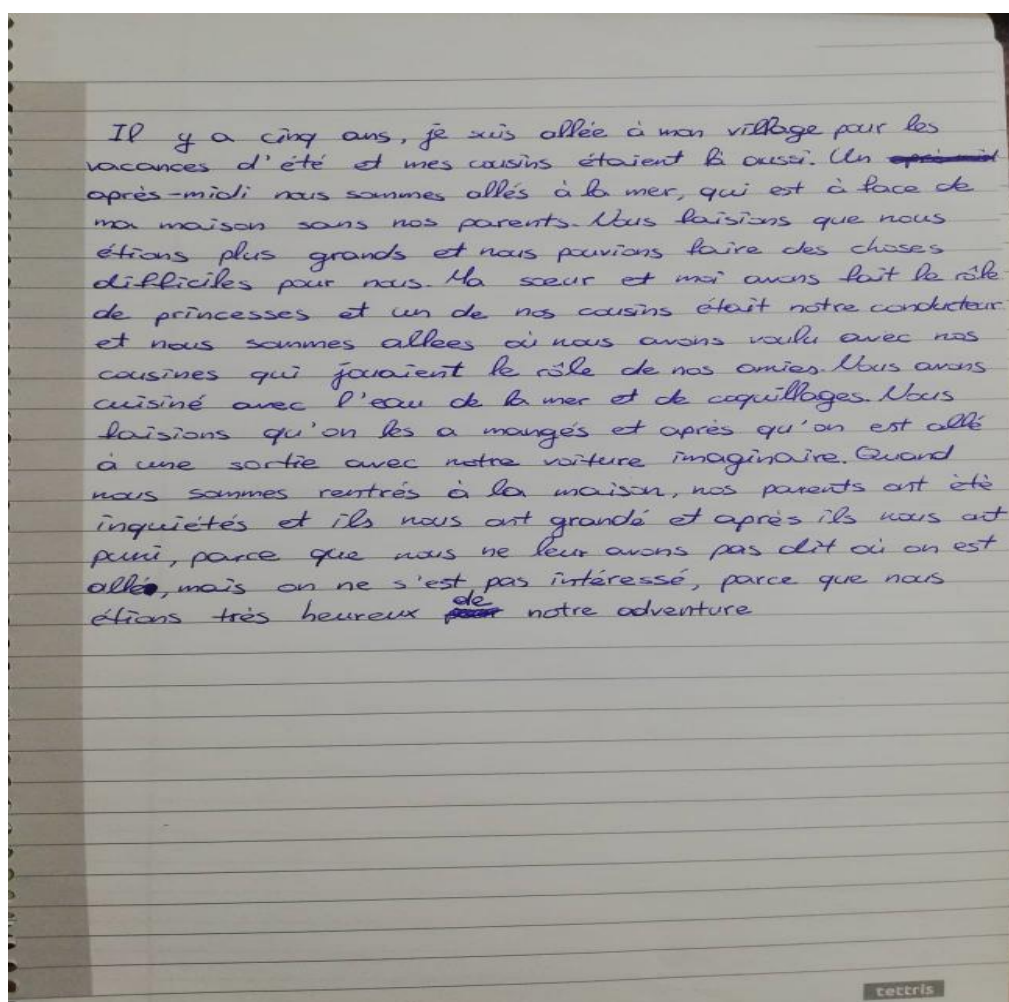 Il y a cinq ans, je suis allée à mon village pour les
vacances d'été et mes cousins étaient là aussi. Un après-midi
après-midi nous sommes allés à la mer, qui est à face de
ma maison sans nos parents. Nous faisions que nous
étions plus grands et nous pouvions faire des choses
difficiles pour nous. Ma sœur et moi avons fait le rôle
de princesses et un de nos cousins était notre conducteur
et nous sommes allées où nous avons voulu avec nos
cousines qui jouaient le rôle de nos amies. Nous avons
cuisiné avec l'eau de la mer et de coquillages. Nous
faisions qu'on les a mangés et après qu'on est allé
à une sortie avec notre voiture imaginaire. Quand
nous sommes rentrés à la maison, nos parents ont été
inquiétés et ils nous ont grandé et après ils nous ont
puni, parce que nous ne leur avons pas dit où on est
allé, mais on ne s'est pas intéressé, parce que nous
étions très heureux de notre adventure
tettris